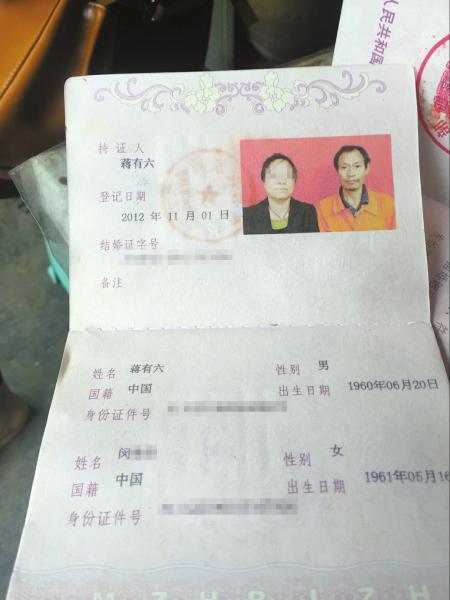 人民共和国
持证人
蒋有六
登记日期
2012 年 11 月 01 日
结婚证字号
备注
姓名 蒋有六 性别 男
国籍 中国 出生日期 1960年06月20日
身份证件号
姓名 闵 性别 女
国籍 中国 出生日期 1961年05月16
身份证件号